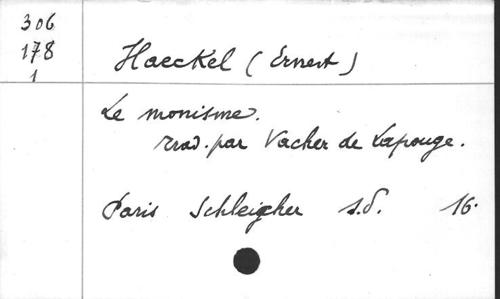 306
178
1
Haeckel (Ernest)
Le monisme.
Trad. par Vacher de Lapouge.
Paris Schleicher s.d. 16.